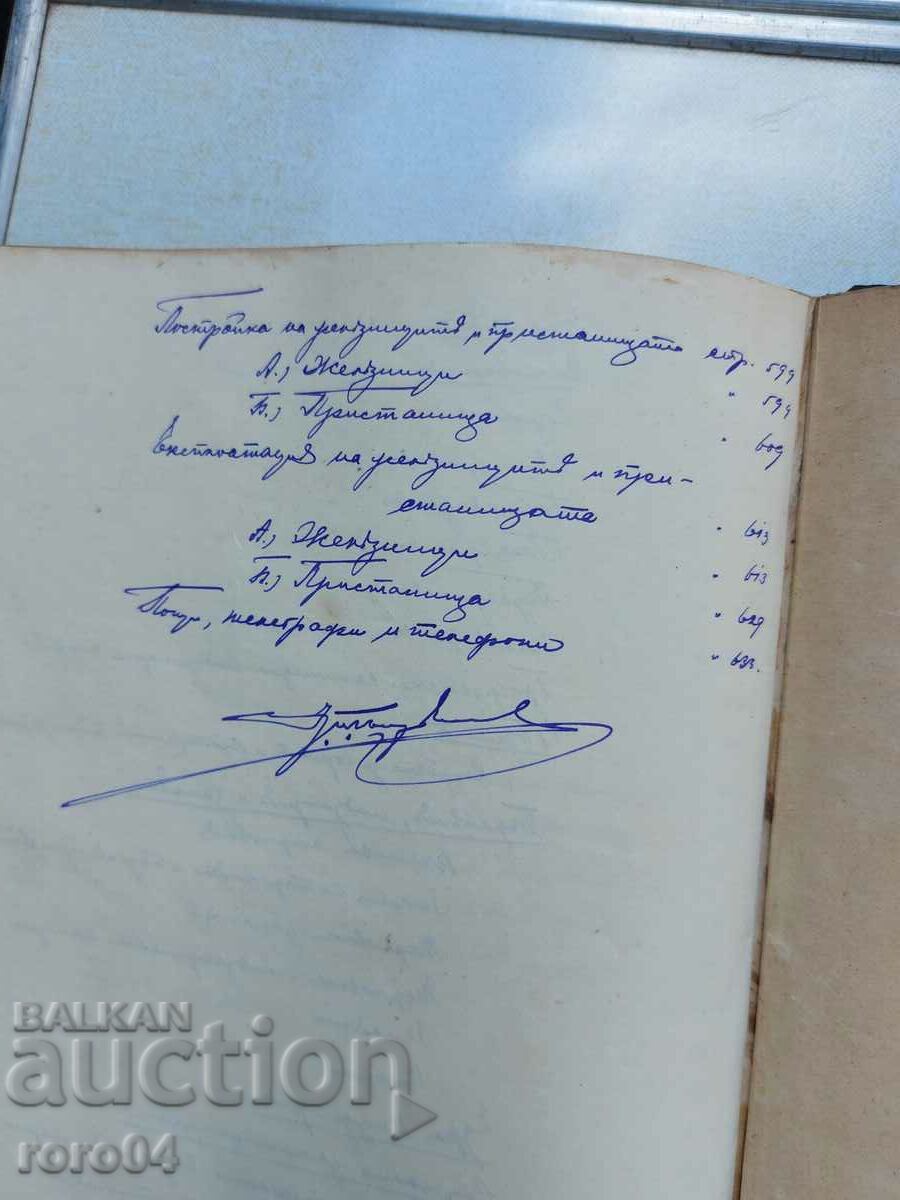 Постройка на желѣзницитѣ и пристанищата стр. 599
А.) Желѣзници " 599
Б.) Пристанища " 609
Експлоатация на желѣзницитѣ и при-
станищата " 613
А.) Желѣзници " 613
Б.) Пристанища " 629
Пощи, телеграфи и телефони " 633.
BALKAN
auction
roro04